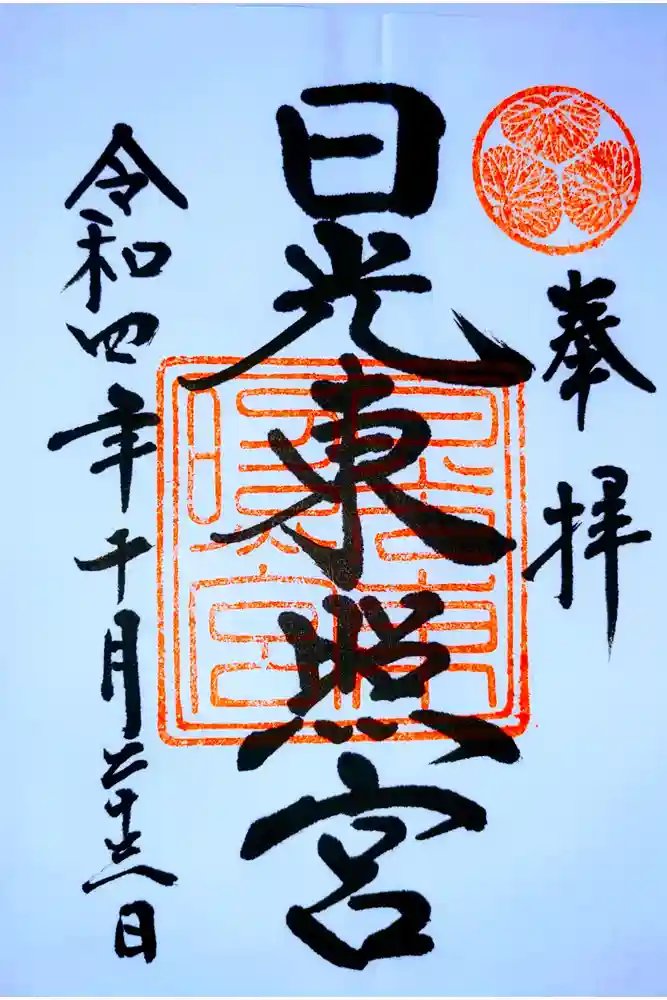 奉拝
日光東照宮
日光東照宮
令和四年十月二十六日